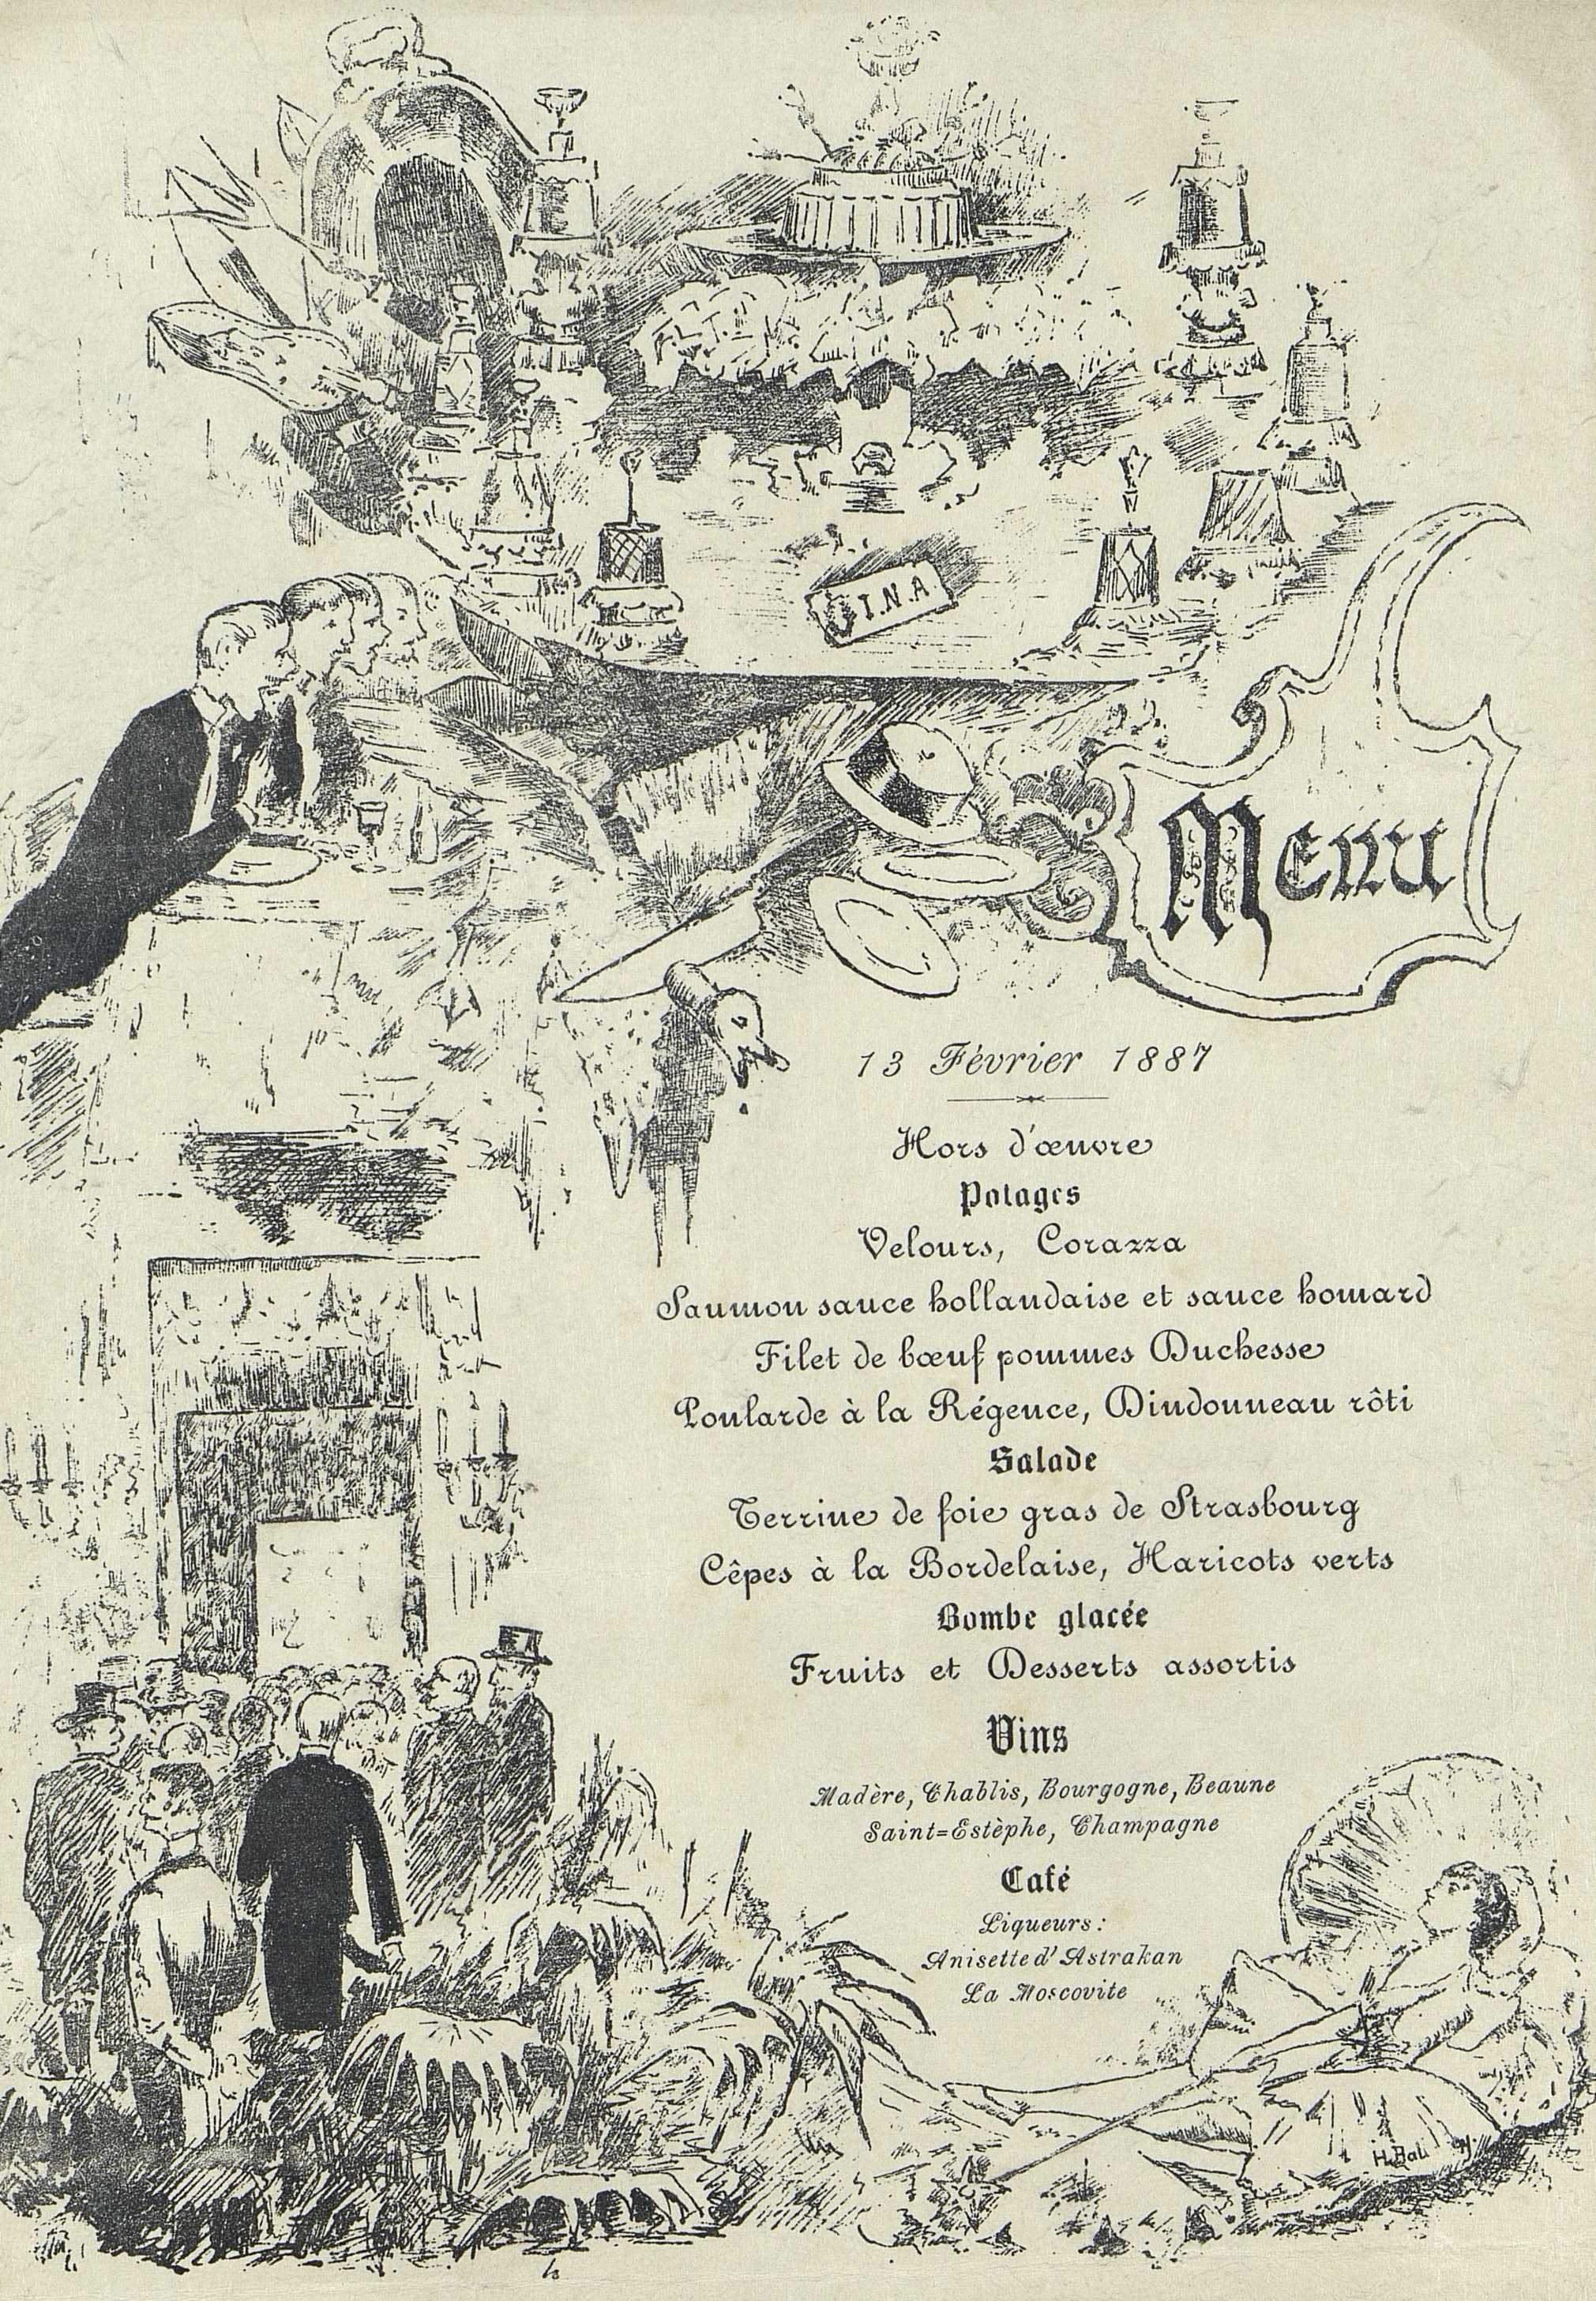 I.N.A
Menu
13 Février 1887
Hors d'œuvre
Potages
Velours, Corazza
Saumon sauce hollandaise et sauce homard
Filet de bœuf pommes Duchesse
Poularde à la Régence, Dindonneau rôti
Salade
Terrine de foie gras de Strasbourg
Cêpes à la Bordelaise, Haricots verts
Bombe glacée
Fruits et Desserts assortis
Vins
Madère, Chablis, Bourgogne, Beaune
Saint=Estèphe, Champagne
Café
Liqueurs:
Anisette d'Astrakan
La Moscovite